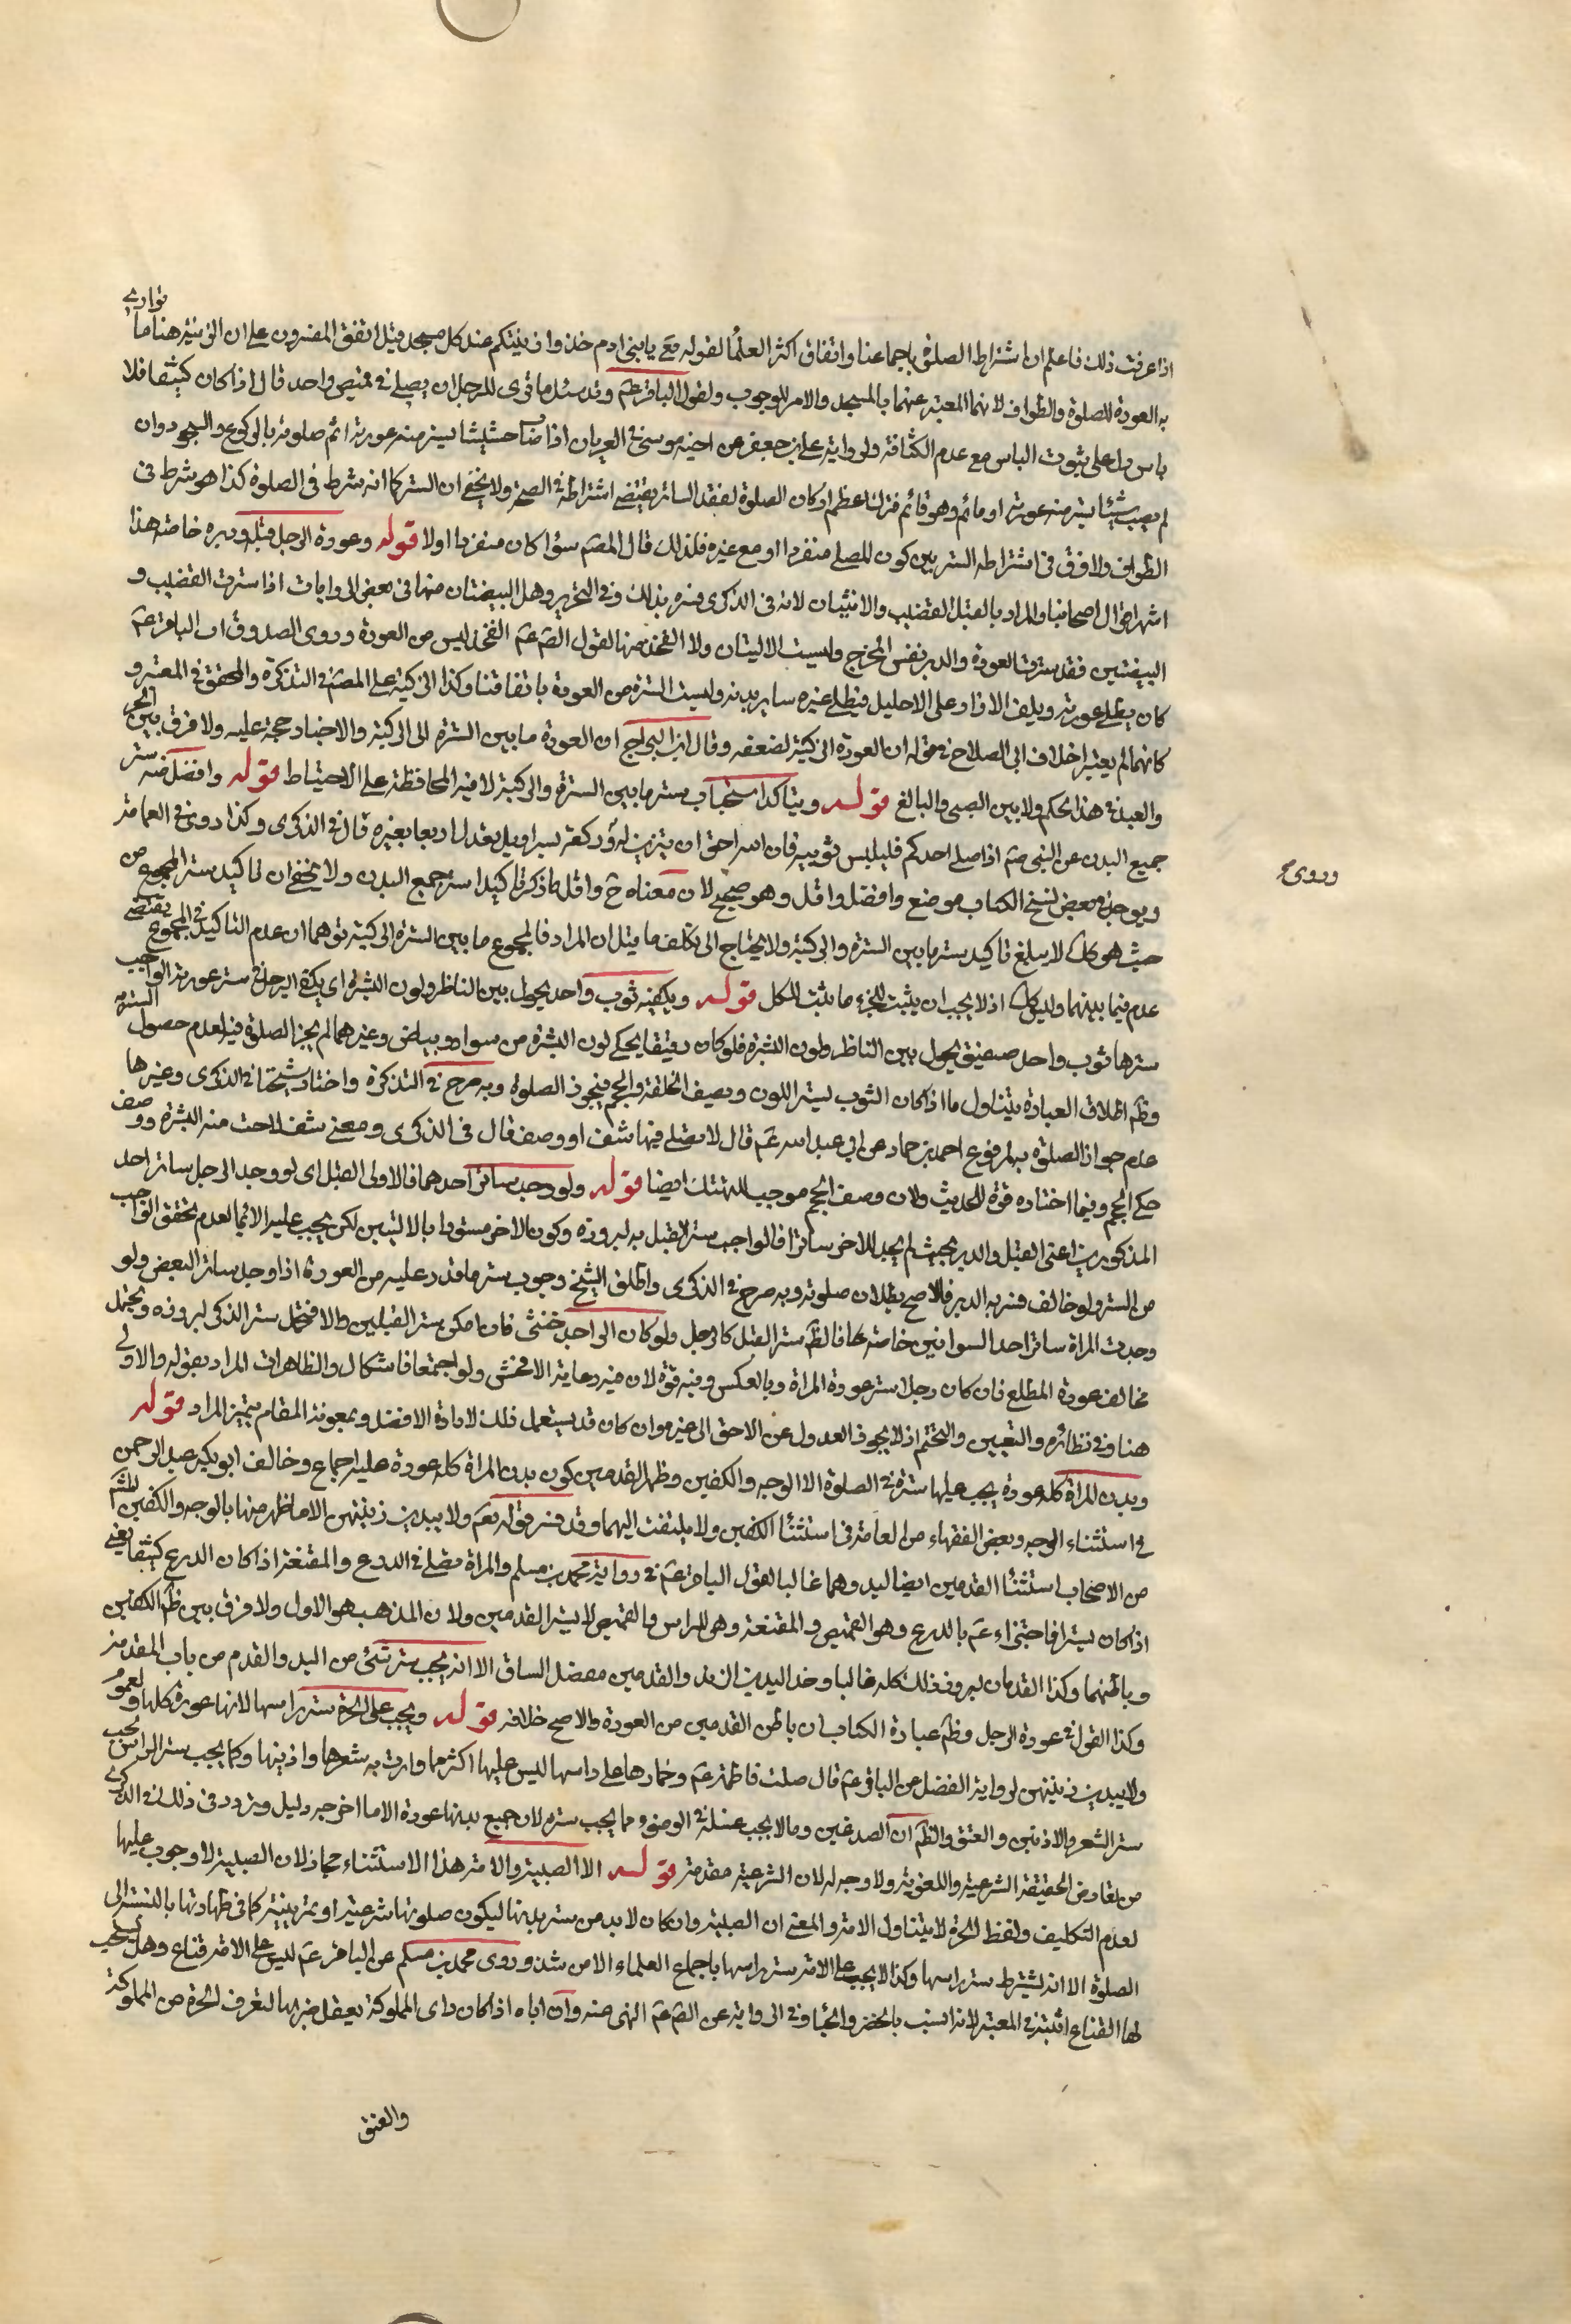 اذا عرفت ذلك فاعلم ان اشتراطه الصلوة باجماعنا واتفاق اكثر العلما لقوله تع يا بنى ادم خذوا زينتكم عند كل مسجد قيل اتفق المفسرون على ان الزينة هنا ما توارى
به العورة للصلوة والطواف لانهما المعتبر عنهما بالمسجد والامر للوجوب ولقول الباقر عم وقد سئل ما ترى للرجل ان يصلى فى قميص واحد قال اذا كان كثيفا فلا
باس دل على ثبوت الباس مع عدم الكثافة ولرواية على بن جعفر عن اخيه موسى فى العريان اذا اصاب حشيشا يستر منه عورته اتم صلوته بالركوع والسجود وان
لم يصب شيئا يستر منه عورته اومأ ثم وهو قائم فترك اعظم اركان الصلوة لفقد الساتر يقتضى اشتراطه فى الصحة ولا يخفى ان الستر كما انه شرط فى الصلوة كذا هو شرط فى
الطواف ولا فرق فى اشتراطه الستر بين كون المصلى منفردا او مع غيره فلذلك قال المصم سواء كان منفردا اولا قوله وعورة الرجل قبله ودبره خاصة هذا
اشهر اقوال اصحابنا والمراد بالقبل القضيب والانثيان لانه فى الذكرى فسره بذلك وفى التحرير وهل البيضتان منها فى بعض الروايات اذا سترت القضيب و
البيضتين فقد سترت العورة والدبر نفس المخرج وليست الاليتان ولا الفخذ منها لقول الصم عم الفخذ ليس من العورة وروى الصدوق ان الباقر عم
كان يطلى عورته ويلف الازار على الاحليل فيطلى غيره سائر بدنه وليست السرة من العورة باتفاقنا وكذا الركبة على المصم فى التذكرة والمحقق فى المعتبر و
كانهما لم يعتبرا خلاف ابى الصلاح فى قوله ان العورة الركبة لضعفه وقال ابن البراج ان العورة ما بين السرة الى الركبة والاخبار حجة عليه ولا فرق بين الحر
والعبد فى هذا الحكم ولا بين الصبى والبالغ قوله ويتاكد استحباب ستر ما بين السرة والركبة لما فيه المحافظة على الاحتياط قوله وافضل منه ستر
جميع البدن عن النبى صم اذا صلى احدكم فليلبس ثوبيه فان الله احق ان يتزين له وركعة بسراويل تعدل اربعا بغيره قال فى الذكرى وكذا روى فى العمامة
وروى
ويوجد فى بعض نسخ الكتاب موضع وافضل واقل وهو صحيح لان معناه ح واقل ما ذكر تاكيدا ستر جميع البدن ولا يخفى ان تاكيد ستر المجموع من
حيث هو كذلك لا يبلغ تاكيد ستر ما بين السرة والركبة ولا يحتاج الى تكلف ما قيل ان المراد فالمجموع ما بين السرة الى الركبة توهما ان عدم التاكيد فى المجموع يقتضى
عدم فيما بينهما وليس كذلك اذ لا يجب ان يثبت للجزء ما يثبت للكل قوله ويكفيه ثوب واحد يحول بين الناظر ولون البشرة اى يكفى الرجل فى ستر عورته الواجب
سترها ثوب واحد صفيق يحول بين الناظر ولون البشرة فلو كان رقيقا يحكى لون البشرة من سواد وبياض وغيرهما لم يجز الصلوة فيه لعدم حصول الستر به
وظم اطلاق العبارة يتناول ما اذا كان الثوب ليستر اللون ويصف الخلقة والحجم فيجوز الصلوة وبه صرح فى التذكرة واختار شيخنا فى الذكرى وغيرها
عدم جواز الصلوة به لمرفوع احمد بن حماد عن ابى عبد الله عم قال لا تصلى فيما شف او وصف قال فى الذكرى ومعنى شف لاحت منه البشرة ووصف
حكى الحجم وفيما اختاره قوة للحديث ولان وصف الحجم موجب للهتك ايضا قوله ولو وجد ساتر احدهما فالاولى القبل اى لو وجد الرجل ساتر احد
المذكورين اعنى القبل والدبر بحيث لم يجد للاخر ساترا فالواجب ستر القبل به لبروزه وكون الاخر مستورا بالاليتين لكن يجب عليه الايما لعدم تحقق الواجب
من الستر ولو خالف فستر به الدبر فالاصح بطلان صلوته وبه صرح فى الذكرى واطلق الشيخ وجوب ستر ما قدر عليه من العورة اذا وجد ساتر البعض ولو
وجدت المراة ساتر احد السواتين خاصة كما فالظم ستر القبل كالرجل ولو كان الواجد خنثى فان امكن ستر القبلين والا فيحتمل ستر الذكر لبروزه ويحتمل
مخالف عورة المطلع فان كان رجلا ستر عورة المراة وبالعكس وفيه قوة لان فيه رعاية الافحش ولو اجتمعا فاشكال والظاهر ان المراد بقوله والاولى
هنا وفى نظائره والتعيين والتحتم اذ لا يجوز العدول عن الاحق الى غيره وان كان قد يستعمل ذلك لارادة الافضل وبمعونة المقام يتميز المراد قوله
وبدن المراة كله عورة يجب عليها ستره فى الصلوة الا الوجه والكفين وظهر القدمين كون بدن المراة كله عورة عليه اجماع وخالف ابو بكير عبد الرحمن
فى استثناء الوجه وبعض الفقهاء من العامة فى استثنا الكفين ولا يلتفت اليهما وقد فسر قوله تعم ولا يبدين زينتهن الا ما ظهر منها بالوجه والكفين والظم
من الاصحاب استثنا القدمين ايضا ليد وهما غالبا لقول الباقر عم فى رواية محمد بن مسلم والمراة تصلى فى الدرع والمقنعة اذا كان الدرع كثيفا يعنى
اذا كان ستيرا فاجتزاء عم بالدرع وهو القميص والمقنعة وهى للراس والقميص لا يستر القدمين ولان المذهب هو الاول ولا فرق بين ظم الكفين
وباطنهما وكذا القدمان لبروز ذلك كله غالبا وحد اليدين الزند والقدمين مفصل الساق الا انه يجب ستر شئ من اليد والقدم من باب المقدمة
وكذا القول فى عورة الرجل وظم عبارة الكتاب ان باطن القدمين من العورة والاصح خلافه قوله ويجب على الحرة ستر راسها لانها عورة كلها ولعموم
ولا يبدين زينتهن لرواية الفضل عن الباقر عم قال صلت فاطمة عم وخمارها على راسها ليس عليها اكثر مما وارت به شعرها واذنيها وكما يجب ستر الراس يجب
ستر الشعر والاذنين والعنق والظم ان الصدغين وما لا يجب غسله فى الوضوء مما يجب ستره لان جميع بدنها عورة الا ما اخرجه دليل وتردد فى ذلك فى الذكرى
من تعارض الحقيقة الشرعية واللغوية ولا وجه له لان الشرعية مقدمة قوله الا الصبية والامة هذا الاستثناء مجاز لان الصبية لا وجوب عليها
لعدم التكليف ولفظ الحرة لا يتناول الامة والمعنى ان الصبية وان كان لابد من ستر بدنها ليكون صلوتها شرعية او تمرينية كما فى طهارتها بالنسبة الى
الصلوة الا انه لا يشترط ستر راسها وكذا لا يجب على الامة ستر راسها باجماع العلماء الا من شذ وروى محمد بن مسلم عن الباقر عم ليس على الامة قناع وهل يستحب
لها القناع اثبته فى المعتبر لانه انسب بالخفر والحيا وفى الرواية عن الصم عم النهى عنه وان اباه اذا كان راى المملوكة تصلى بقناع ضربها لتعرف الحرة من المملوكة
والعنق